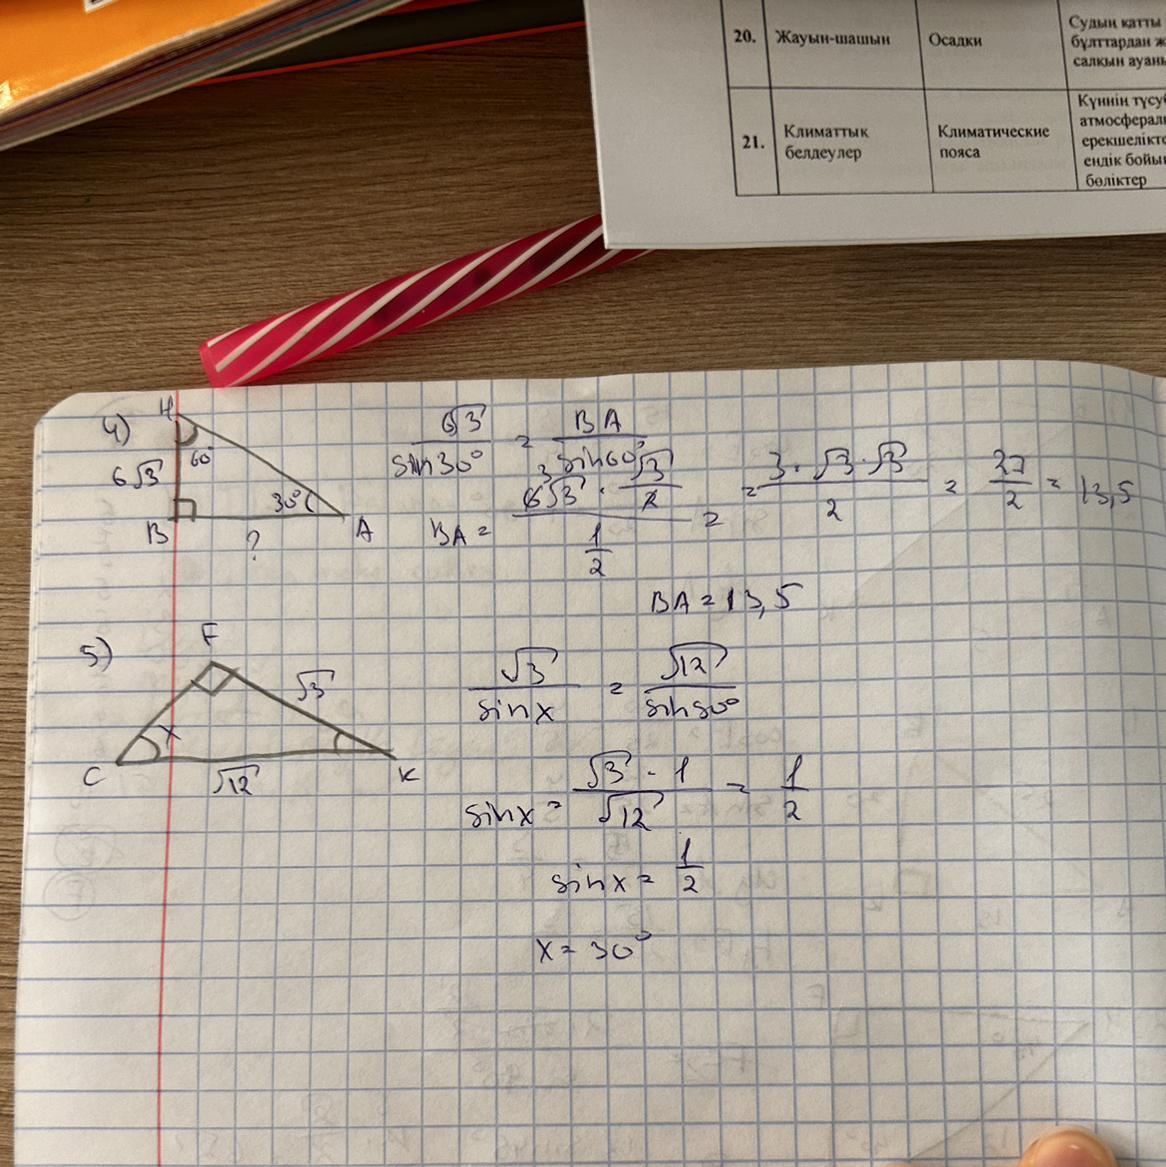 20. Жауын-шашын Осадки Судын катты
бұлттардан ж
салқын ауаны
21. Климаттык белдеулер Климатические пояса Күннің түсу
атмосфералы
ерекшелікте
ендік бойы
бөліктер
4) H 60 6√3 B ? 30° A
6√3 / sin30° = BA / sin60°
BA = (6√3 · √3/2) / (1/2) = = (3 · √3 · √3) / 2 = 27/2 = 13,5
BA = 13,5
5) F √3 x C √12 K
√3 / sinx = √12 / sin90°
sinx = (√3 · 1) / √12 = 1/2
sinx = 1/2
x = 30°